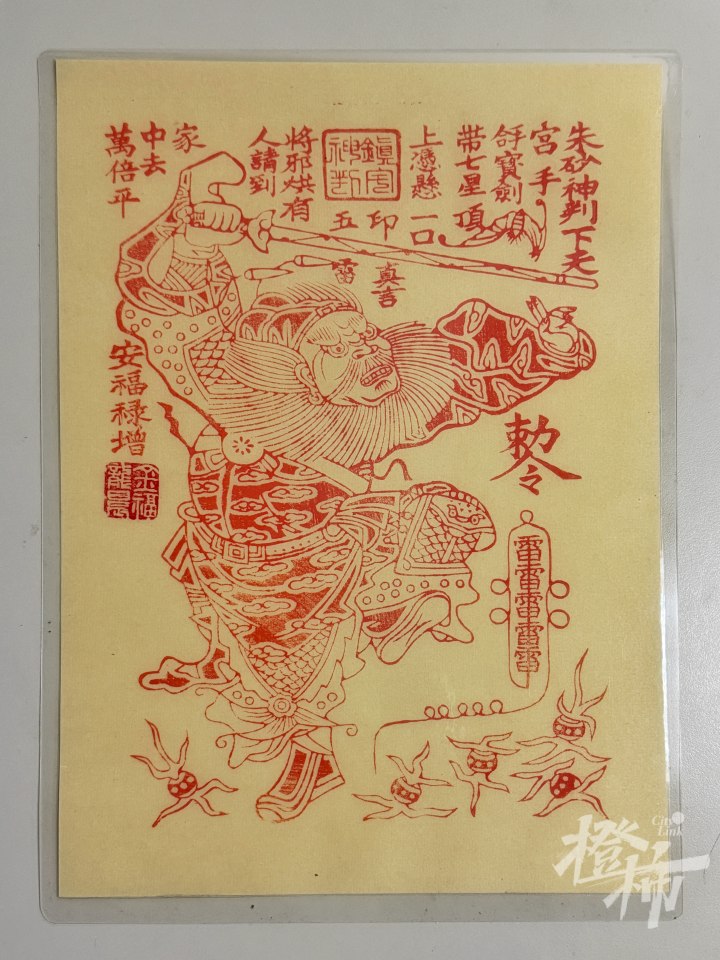 朱砂神判下天
宮手
寶劍
带七星頂
上憑懸
一口
鎮宅神判
印
五
雷
将邪烘有
人請到
家
中去
萬倍平
安福禄增
敕令
雷雷雷雷雷
橙柿
City Link